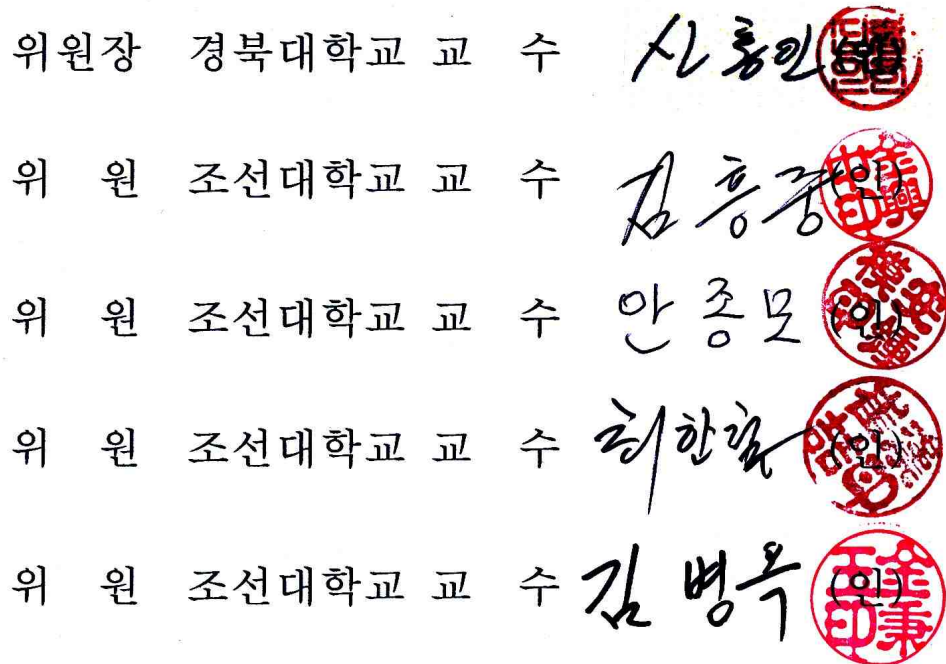 위원장 경북대학교 교 수 신홍인 (인)
위 원 조선대학교 교 수 김흥중 (인)
위 원 조선대학교 교 수 안종모 (인)
위 원 조선대학교 교 수 최한철 (인)
위 원 조선대학교 교 수 김병옥 (인)